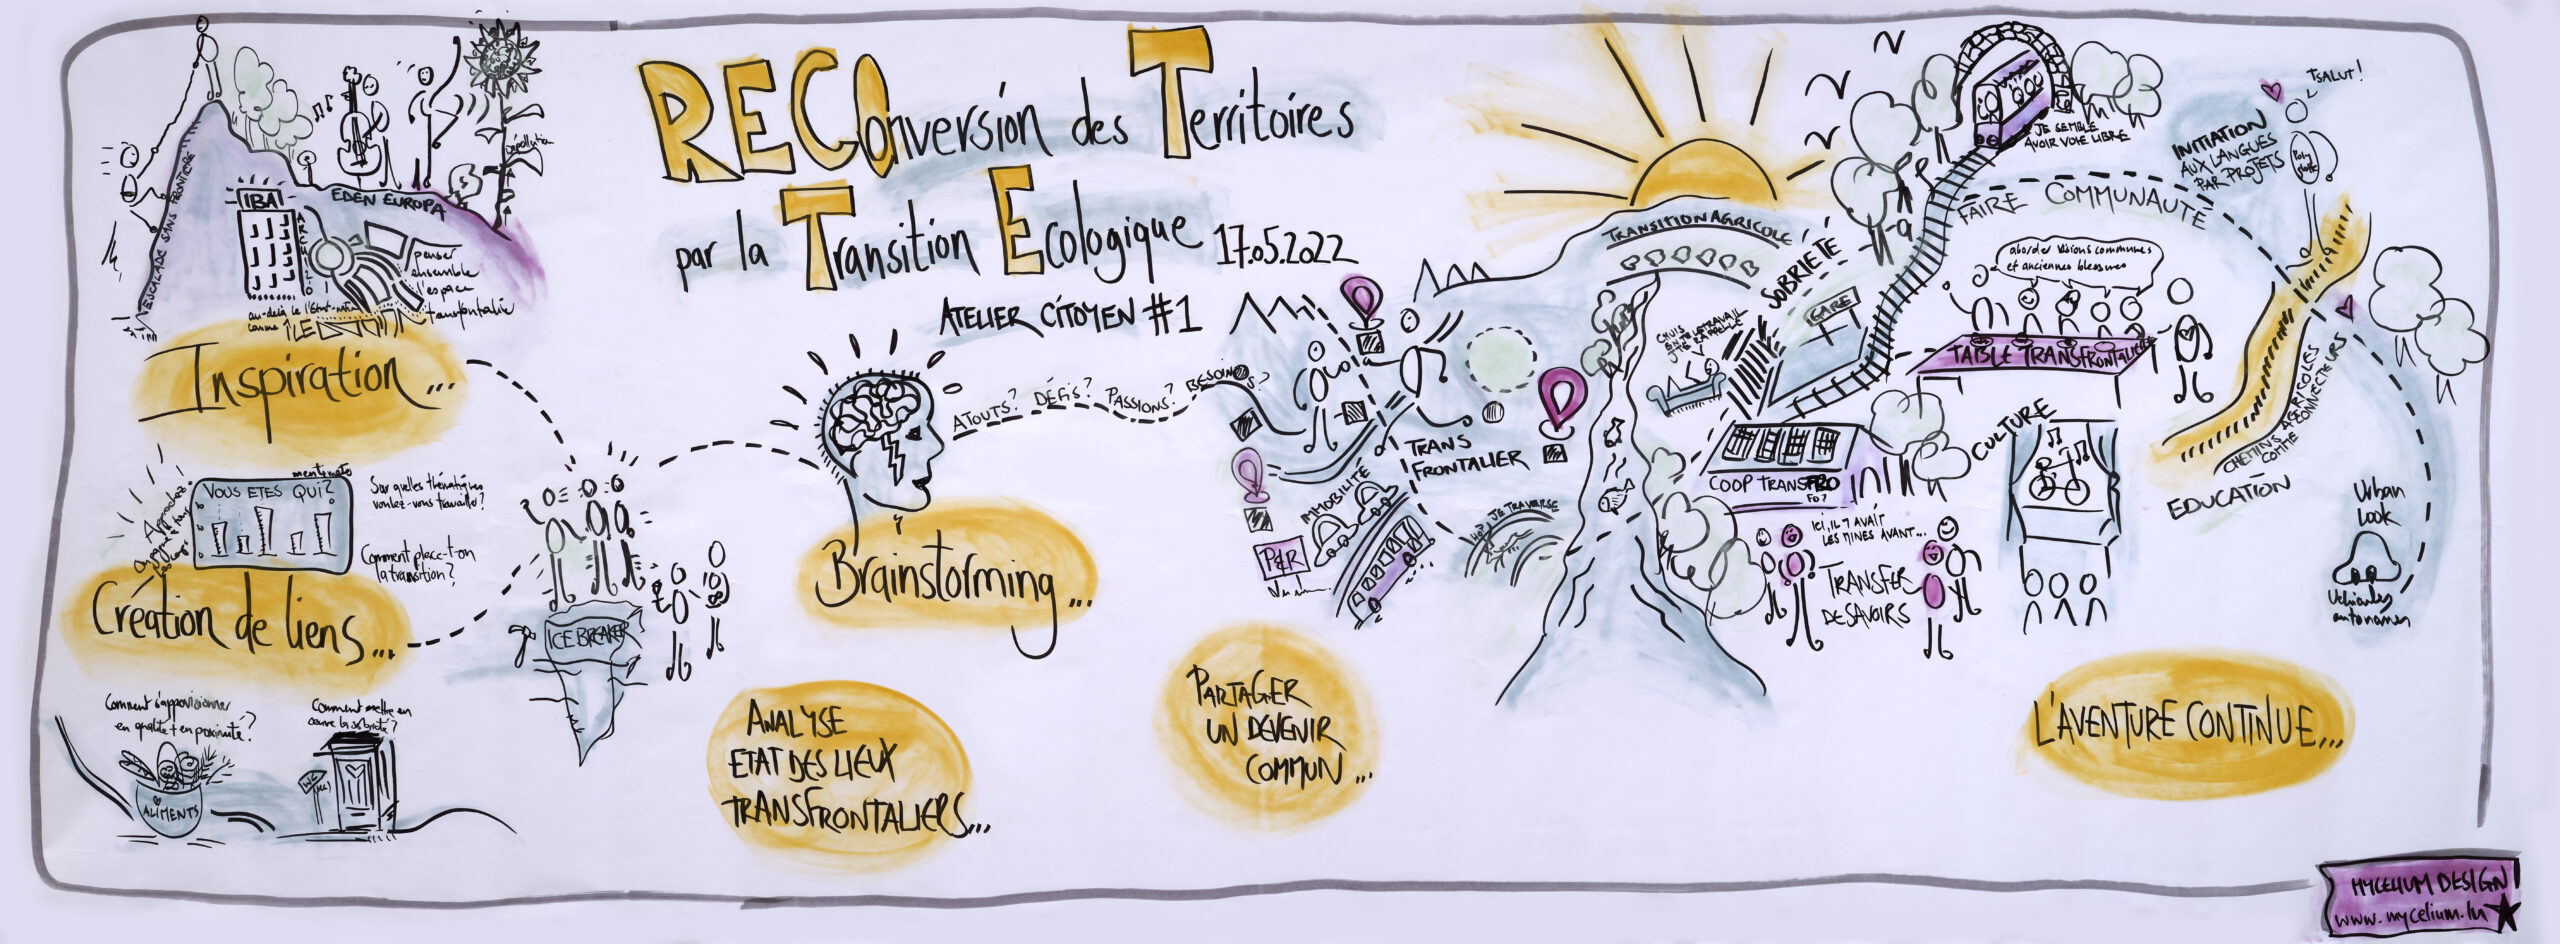 RECOnversion des Territoires
par la Transition Ecologique 17.05.2022
ATELIER CITOYEN #1
ESCALADE SANS FRONTIERE
EDEN EUROPA
Dépollution
IBA
penser
ensemble
l'espace
transfontalier
au-delà de
comme ÎLE
INSPIRATION...
mentimeter
VOUS ETES QUI?
Sur quelles thématiques
voulez-vous travailler?
Comment place-t-on
la transition?
Création de liens...
Comment s'approvisionner
en qualité + en proximité?
ALIMENTS
Comment mettre en
œuvre la sobriété?
WC
ICE BREAKER
Brainstorming...
ATOUTS? DÉFIS? PASSIONS? BESOINS?
ANALYSE
ETAT DES LIEUX
TRANSFRONTALIERS...
TRANS
FRONTALIER
MMOBILITÉ
P&R
HOP JE TRAVERSE
PARTAGER
UN DEVENIR
COMMUN...
TRANSITION AGRICOLE
SOBRIETE
GARE
JE SEMBLE
AVOIR VOIE LIBRE
FAIRE COMMUNAUTE
INITIATION
AUX LANGUES
PAR PROJETS
TSALUT!
aborder visions communes
et anciennes blessures
TABLE TRANSFRONTALIERE
COOP TRANSFRO
FO?
ICI, IL Y AVAIT
LES MINES AVANT...
TRANSFER
DE SAVOIRS
CULTURE
CHEMINS AGRICOLES
COMME CONNECTEURS
EDUCATION
Urban
Look
Vehicules
autonomes
L'AVENTURE CONTINUE...
MYCELIUM DESIGN
www.mycelium.lu